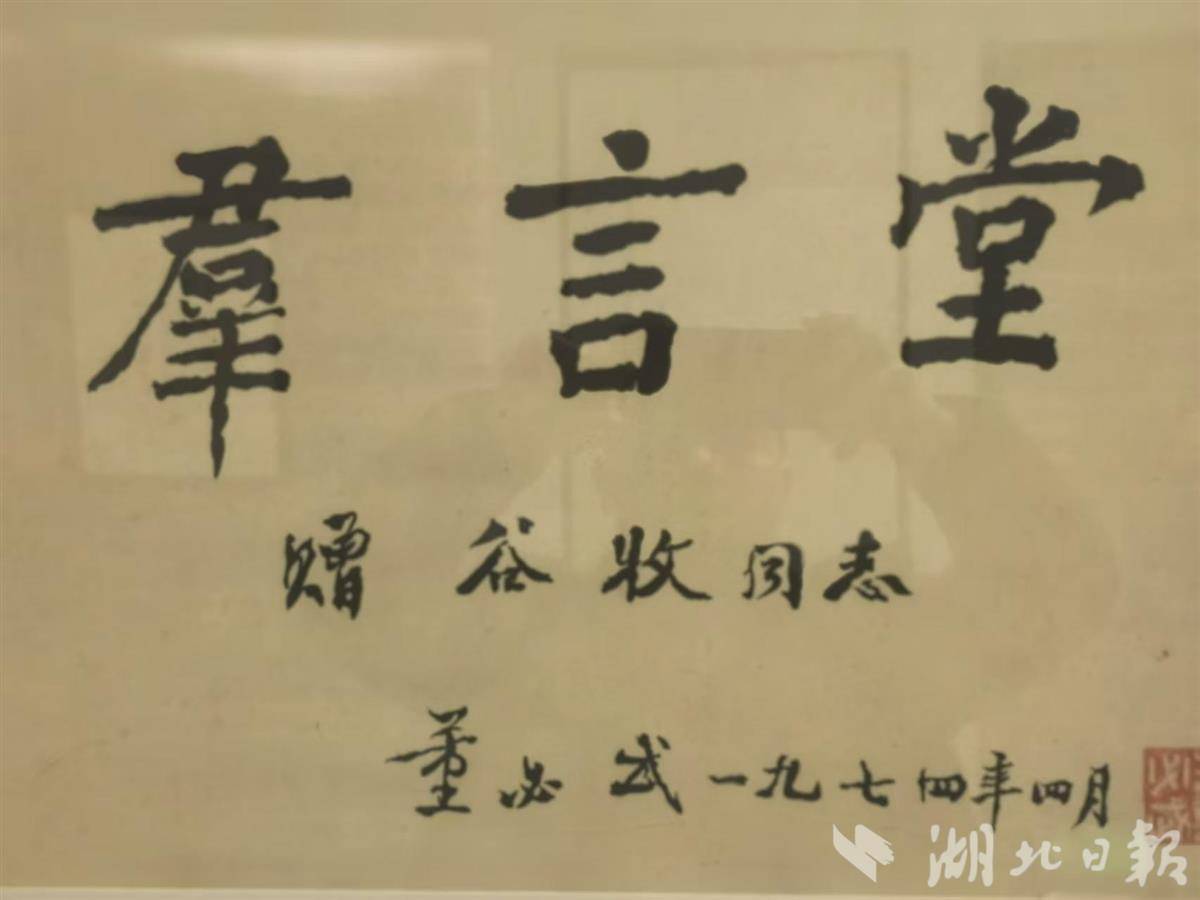 羣言堂
贈谷牧同志
董必武一九七四年四月
湖北日報